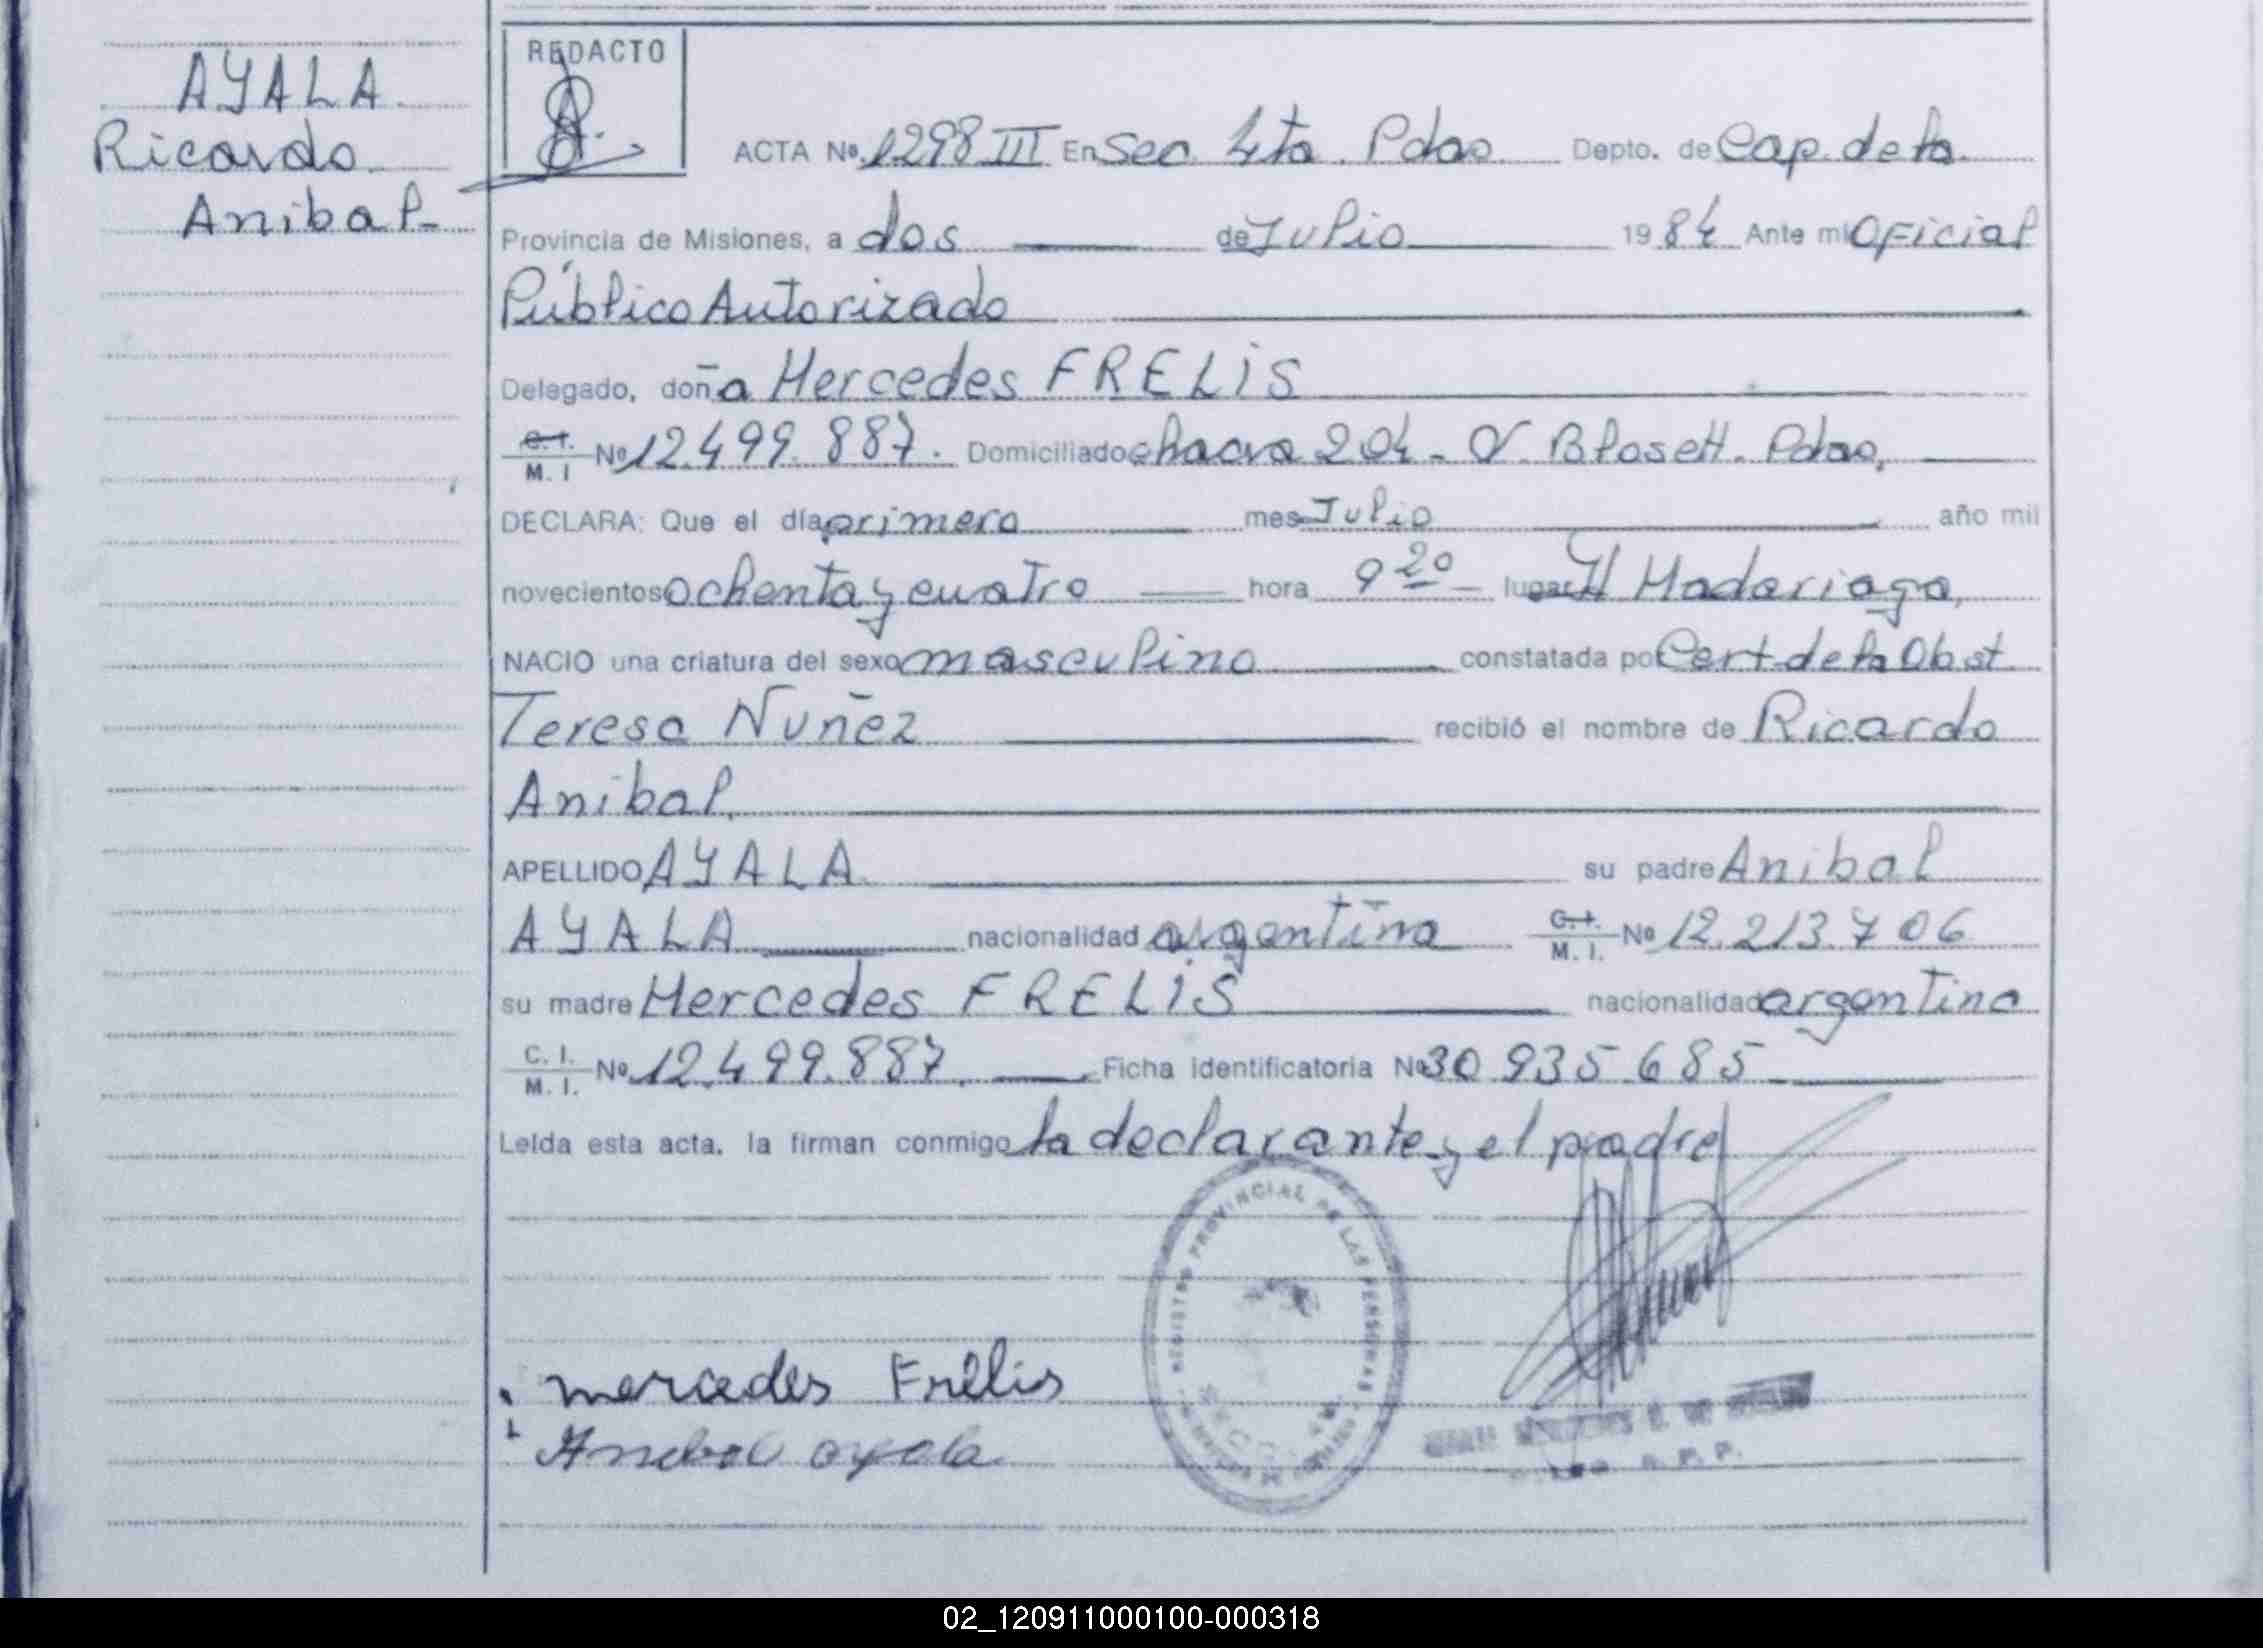 AYALA
Ricardo
Anibal-
REDACTO
ACTA Nº 1298 III En Sec 4ta. Pdas Depto. de Cap. de la
Provincia de Misiones, a dos de Julio 1984 Ante mi Oficial
Público Autorizado
Delegado, doña Mercedes FRELIS
C.I. M. I Nº 12.499.887. Domiciliado chacra 204- V. Blosett. Pdas,
DECLARA: Que el día primero mes Julio año mil
novecientos ochenta y cuatro hora 9 20 lugar H Madariaga,
NACIO una criatura del sexo masculino constatada por Cert. de la Obst
Teresa Nuñez recibió el nombre de Ricardo
Anibal.
APELLIDO AYALA su padre Anibal
AYALA nacionalidad argentina C.I. M. I. Nº 12.213.706
su madre Mercedes FRELIS nacionalidad argentina
C. I. M. I. Nº 12.499.887. Ficha Identificatoria Nº 30 935 685
Leída esta acta, la firman conmigo la declarante y el padre
REGISTRO PROVINCIAL DE LAS PERSONAS
mercedes Frelis
Anebal ayala
02_120911000100-000318